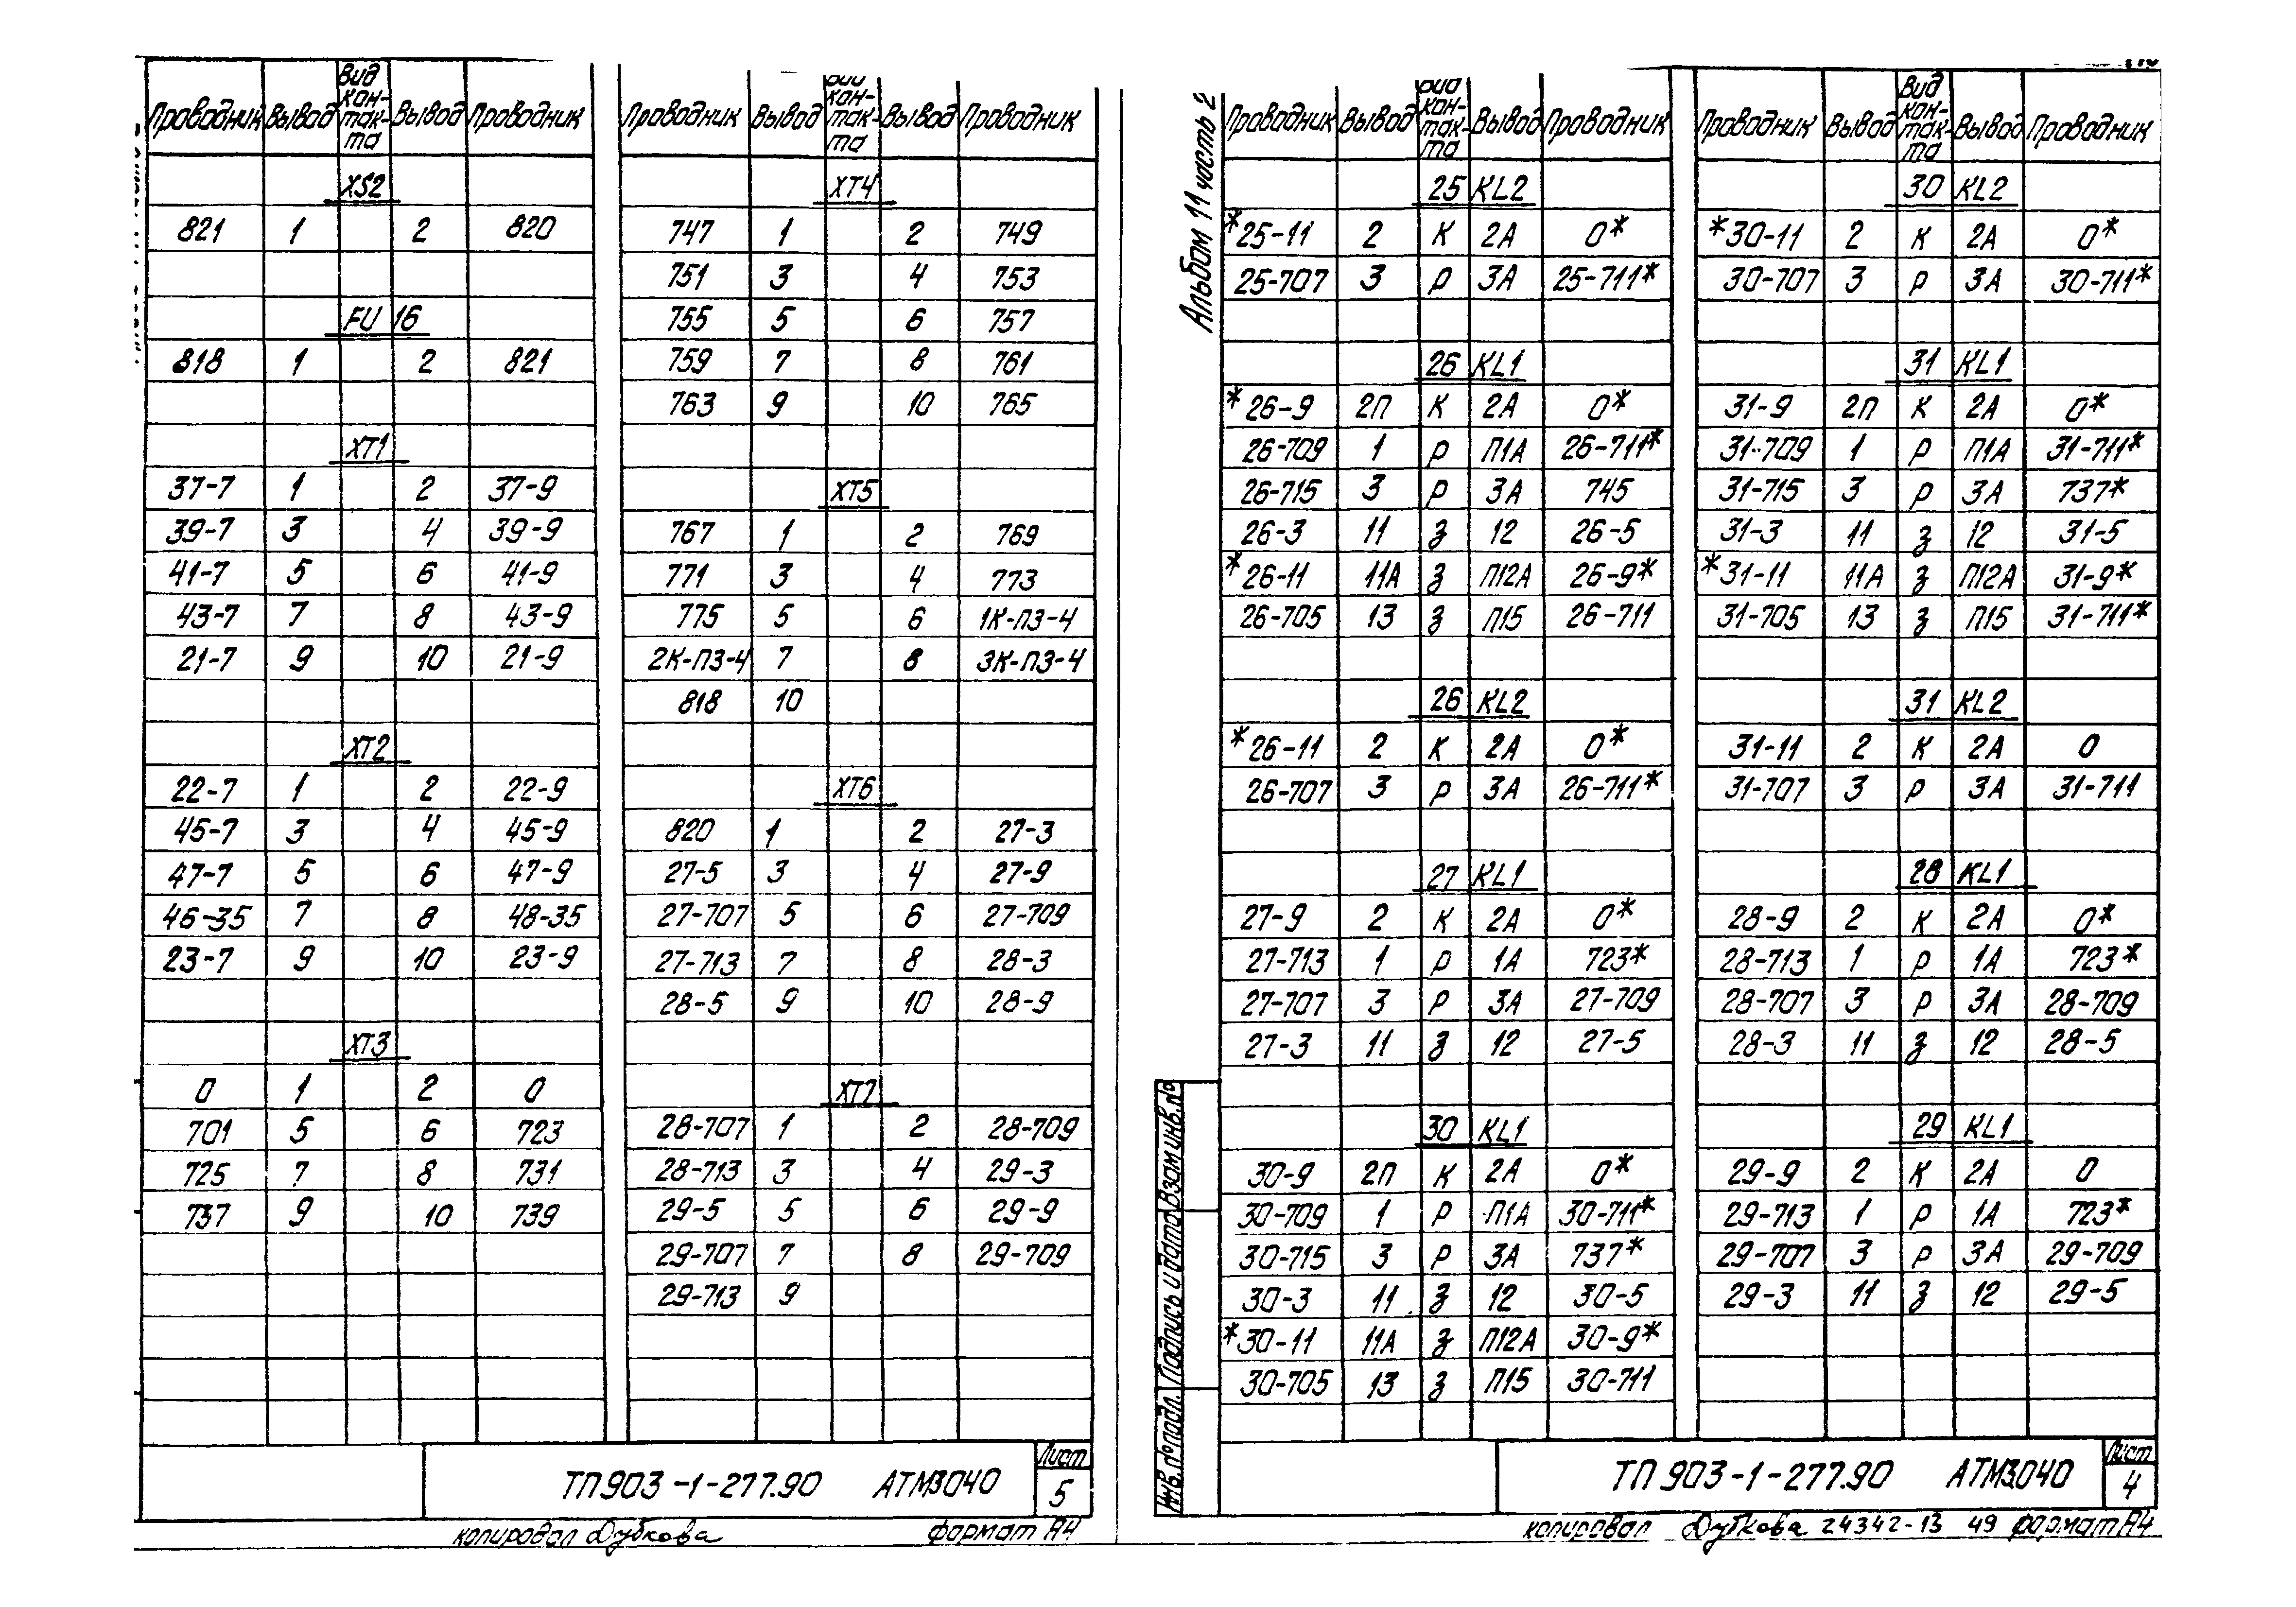 Проводник Вывод Вид кон-так-та Вывод Проводник
XS2
821 1 2 820
FU 16
818 1 2 821
XT1
37-7 1 2 37-9
39-7 3 4 39-9
41-7 5 6 41-9
43-7 7 8 43-9
21-7 9 10 21-9
XT2
22-7 1 2 22-9
45-7 3 4 45-9
47-7 5 6 47-9
46-35 7 8 48-35
23-7 9 10 23-9
XT3
0 1 2 0
701 5 6 723
725 7 8 731
737 9 10 739
Проводник Вывод Вид кон-так-та Вывод Проводник
XT4
747 1 2 749
751 3 4 753
755 5 6 757
759 7 8 761
763 9 10 765
XT5
767 1 2 769
771 3 4 773
775 5 6 1К-П3-4
2К-П3-4 7 8 3К-П3-4
818 10
XT6
820 1 2 27-3
27-5 3 4 27-9
27-707 5 6 27-709
27-713 7 8 28-3
28-5 9 10 28-9
XT7
28-707 1 2 28-709
28-713 3 4 29-3
29-5 5 6 29-9
29-707 7 8 29-709
29-713 9
ТП 903-1-277.90 АТМ3.040
Лист
5
копировал Дубкова формат А4
Альбом 11 часть 2
Проводник Вывод Вид кон-так-та Вывод Проводник
25 KL2
*25-11 2 К 2А 0*
25-707 3 Р 3А 25-711*
26 KL1
*26-9 2П К 2А 0*
26-709 1 Р П1А 26-711*
26-715 3 Р 3А 745
26-3 11 З 12 26-5
*26-11 11А З П12А 26-9*
26-705 13 З П15 26-711
26 KL2
*26-11 2 К 2А 0*
26-707 3 Р 3А 26-711*
27 KL1
27-9 2 К 2А 0*
27-713 1 Р 1А 723*
27-707 3 Р 3А 27-709
27-3 11 З 12 27-5
30 KL1
30-9 2П К 2А 0*
30-709 1 Р П1А 30-711*
30-715 3 Р 3А 737*
30-3 11 З 12 30-5
*30-11 11А З П12А 30-9*
30-705 13 З П15 30-711
Проводник Вывод Вид кон-так-та Вывод Проводник
30 KL2
*30-11 2 К 2А 0*
30-707 3 Р 3А 30-711*
31 KL1
31-9 2П К 2А 0*
31-709 1 Р П1А 31-711*
31-715 3 Р 3А 737*
31-3 11 З 12 31-5
*31-11 11А З П12А 31-9*
31-705 13 З П15 31-711*
31 KL2
31-11 2 К 2А 0
31-707 3 Р 3А 31-711
28 KL1
28-9 2 К 2А 0*
28-713 1 Р 1А 723*
28-707 3 Р 3А 28-709
28-3 11 З 12 28-5
29 KL1
29-9 2 К 2А 0
29-713 1 Р 1А 723*
29-707 3 Р 3А 29-709
29-3 11 З 12 29-5
Инв.№ подл. Подпись и дата Взам инв.№
ТП 903-1-277.90 АТМ3.040
Лист
4
копировал Дубкова 24342-13 49 формат А4